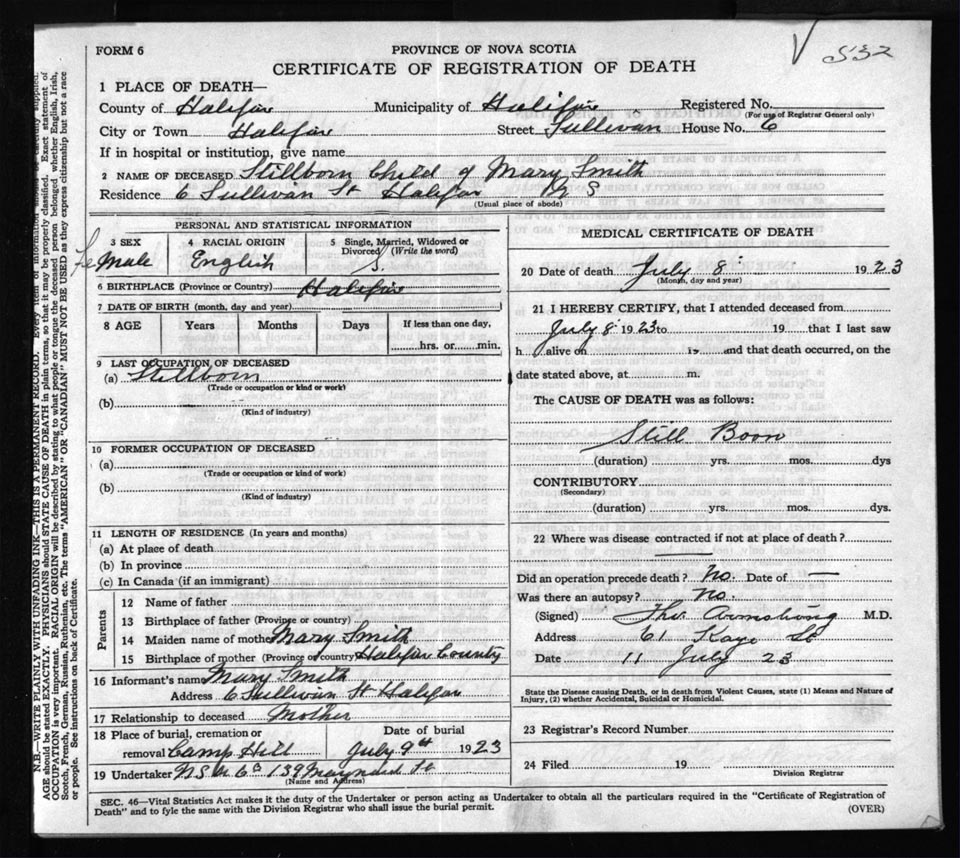 FORM 6
PROVINCE OF NOVA SCOTIA
532
CERTIFICATE OF REGISTRATION OF DEATH
1 PLACE OF DEATH—
County of Halifax Municipality of Halifax Registered No.
(For use of Registrar General only)
City or Town Halifax Street Sullivan House No. 6
If in hospital or institution, give name
2 NAME OF DECEASED Stillborn Child of Mary Smith
Residence 6 Sullivan St Halifax N S
(Usual place of abode)
PERSONAL AND STATISTICAL INFORMATION
3 SEX 4 RACIAL ORIGIN 5 Single, Married, Widowed or Divorced (Write the word)
Female English S.
6 BIRTHPLACE (Province or Country) Halifax
7 DATE OF BIRTH (month, day and year)
8 AGE Years Months Days If less than one day,
hrs. or min.
9 LAST OCCUPATION OF DECEASED
(a) Stillborn
(Trade or occupation or kind or work)
(b)
(Kind of industry)
10 FORMER OCCUPATION OF DECEASED
(a)
(Trade or occupation or kind of work)
(b)
(Kind of industry)
11 LENGTH OF RESIDENCE (In years and months)
(a) At place of death
(b) In province
(c) In Canada (if an immigrant)
Parents
12 Name of father
13 Birthplace of father (Province or country)
14 Maiden name of mother Mary Smith
15 Birthplace of mother (Province or country Halifax County
16 Informant's name Mary Smith
Address 6 Sullivan St Halifax
17 Relationship to deceased Mother
18 Place of burial, cremation or Date of burial
removal Camp Hill July 9th 1923
19 Undertaker N.S. U Co 139 Maynard St
(Name and Address)
MEDICAL CERTIFICATE OF DEATH
20 Date of death July 8 1923
(Month, day and year)
21 I HEREBY CERTIFY, that I attended deceased from
July 8 1923 to 19 that I last saw
h alive on 19 and that death occurred, on the
date stated above, at m.
The CAUSE OF DEATH was as follows:
Still Born
(duration) yrs. mos. dys
CONTRIBUTORY
(Secondary)
(duration) yrs. mos. dys.
22 Where was disease contracted if not at place of death?
Did an operation precede death? No. Date of —
Was there an autopsy? No.
(Signed) Armstrong M.D.
Address 61 Kaye St
Date 11 July 23
State the Disease causing Death, or in death from Violent Causes, state (1) Means and Nature of
Injury, (2) whether Accidental, Suicidal or Homicidal.
23 Registrar's Record Number
24 Filed 19
Division Registrar
SEC. 46—Vital Statistics Act makes it the duty of the Undertaker or person acting as Undertaker to obtain all the particulars required in the "Certificate of Registration of
Death" and to fyle the same with the Division Registrar who shall issue the burial permit. (OVER)
N.B.—WRITE PLAINLY WITH UNFADING INK—THIS IS A PERMANENT RECORD. Every item of information should be carefully supplied.
AGE should be stated EXACTLY. PHYSICIANS should STATE CAUSE OF DEATH in plain terms, so that it may be properly classified. Exact statement of
OCCUPATION is very important. RACIAL ORIGIN will be described by stating to what people or tongue the deceased person belonged, whether English, Irish,
Scotch, French, German, Russian, Ruthenian, etc. The terms "AMERICAN" OR "CANADIAN" MUST NOT BE USED as they express citizenship but not a race
or people. See instructions on back of Certificate.